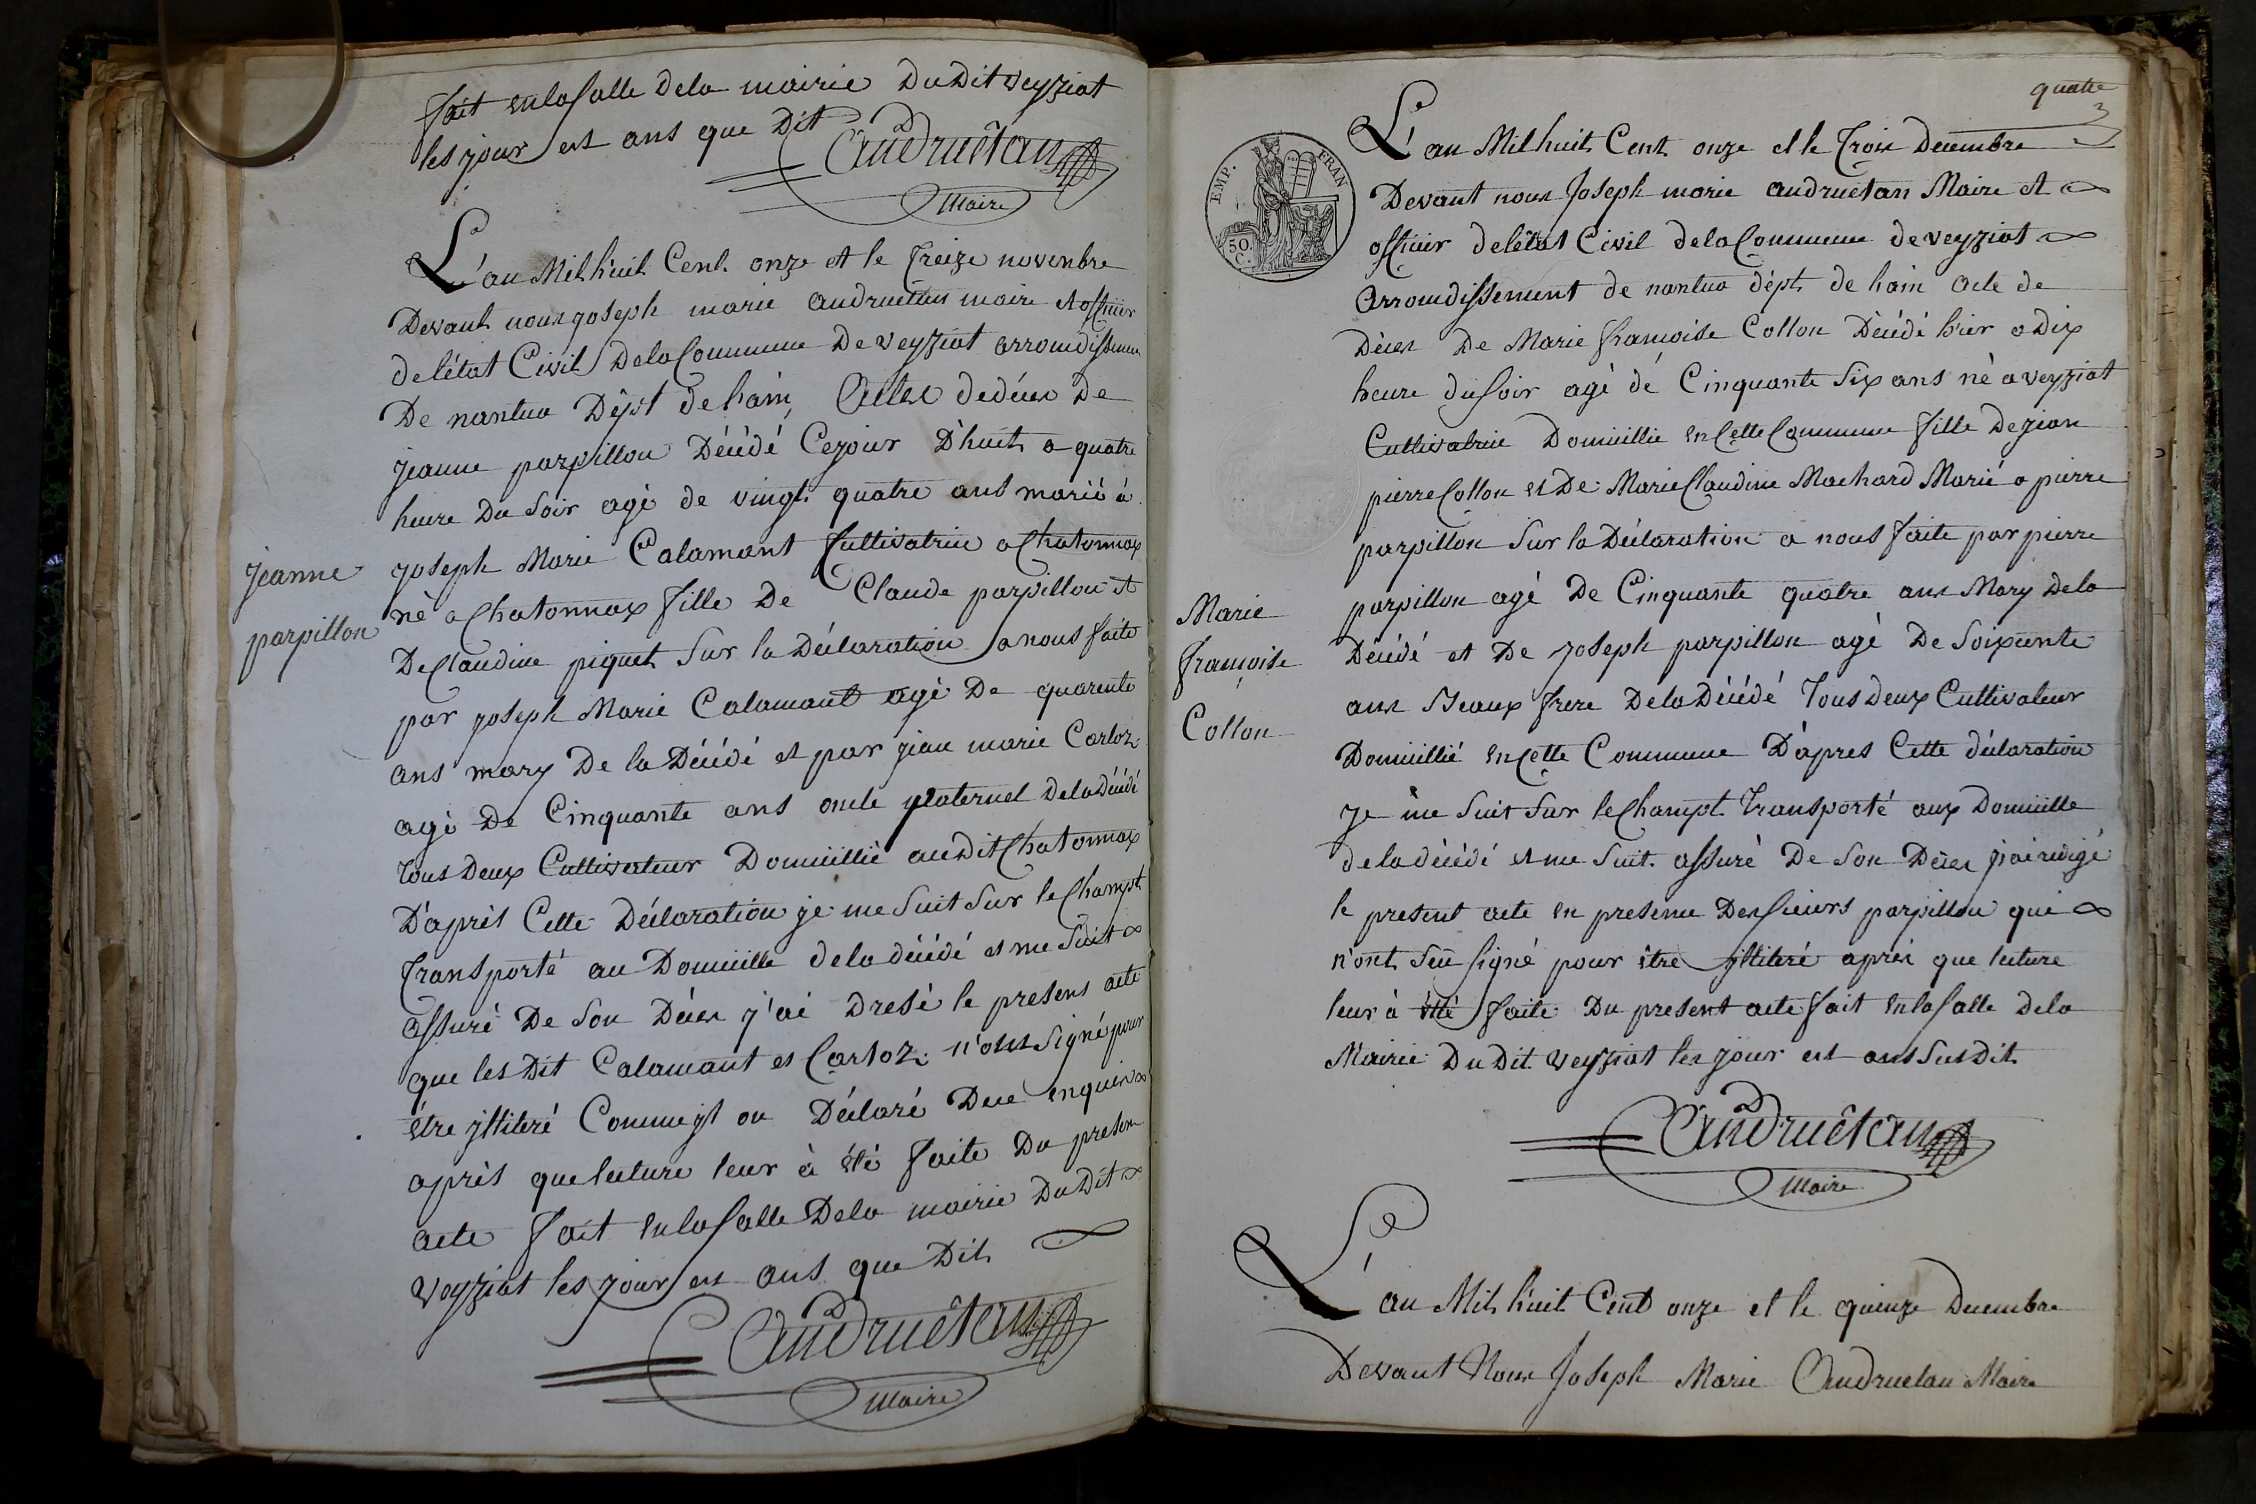 fait en la salle de la mairie Du Dit veyziat
les jour et ans que Dit
Candruétan
Maire
L'an Mil huit Cent onze et le Treize novenbre
Devant nous joseph marie andruétan maire et officier
de létat Civil De la Commune De veyziat arrondissemen
De nantua Dépt de hain Actes de décès De
jeanne parpillon Décédé Ce jour D'huit a quatre
heure Du Soir agé de vingt quatre ans marié à
joseph Marie Calamant Cultivatrice a Chatonnax
né a Chatonnax fille De Claude parpillon et
De Claudine piquet Sur la Déclaration a nous faite
par joseph Marie Calamant agé De quarente
ans mary De la Décédé et par jean marie Carloz
agé De Cinquante ans oncle paternel de la Décédé
tous Deux Cultivateur Domicillié au Dit Chatonnax
D'après Cette Déclaration je me Suit Sur le Champt
Transporté au Domicille de la décédé et me Suit
assuré De Son Décès j'ai Dresé le presens acte
que les Dit Calamant et Carloz n'ont Signé pour
être yllitéré Comme yl on Déclaré Due enquis
après que lecture leur à été faite Du presen
acte fait en la salle De la mairie Du Dit
Veyziat les jour et ans que Dit
Candruétan
Maire
jeanne
parpillon
quatre
3
EMP. FRAN
50.
C.
L'an Mil huit Cent onze et le Trois Décembre
Devant nous Joseph marie andruétan Maire et
officier de létat Civil de la Commune de veyziat
arrondissement de nantua dépt de hain acte de
Décès De Marie françoise Collon Décédé hier a Dix
heure du Soir agé de Cinquante Six ans né a veyziat
Cultivatrice Domicillié en Cette Commune fille De jean
pierre Collon et De Marie Claudine Machard Marié a pierre
parpillon Sur la Déclaration a nous faite par pierre
parpillon agé De Cinquante quatre ans Mary De la
Décédé et De joseph parpillon agé De Soixante
ans Beaux frere De la Décédé Tous Deux Cultivateur
Domicillié en Cette Commune D'apres Cette déclaration
je me Suit Sur le Champt Transporté aux Domicille
de la décédé et me Suit assuré De Son Décès j'ai redigé
le present acte en presence Des Sieurs parpillon qui
n'ont Seu Signé pour être yllitéré après que lecture
leur à été faite Du present acte fait en la Salle de la
Mairie Du Dit veyziat les jour et ans Sus Dit
Candruétan
Maire
Marie
françoise
Collon
L'an Mil huit Cent onze et le quinze Decembre
Devant Nous Joseph Marie Andruetan Maire